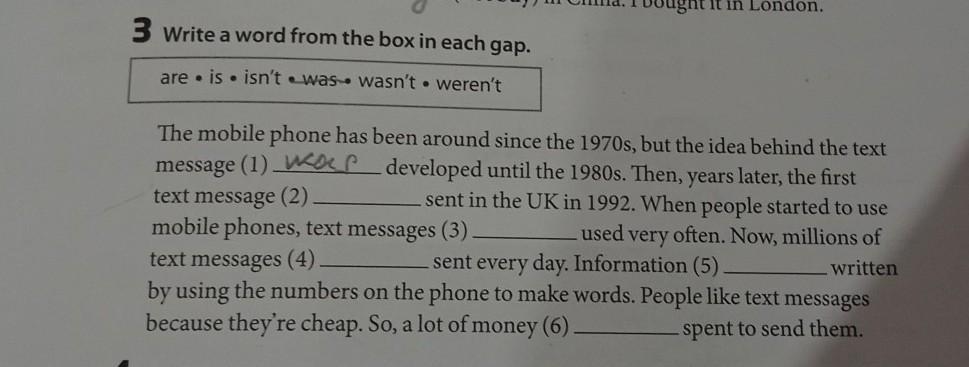 in China. I bought it in London.
3 Write a word from the box in each gap.
are • is • isn't • was • wasn't • weren't
The mobile phone has been around since the 1970s, but the idea behind the text
message (1) was developed until the 1980s. Then, years later, the first
text message (2) ____________ sent in the UK in 1992. When people started to use
mobile phones, text messages (3) ____________ used very often. Now, millions of
text messages (4) ____________ sent every day. Information (5) ____________ written
by using the numbers on the phone to make words. People like text messages
because they're cheap. So, a lot of money (6) ____________ spent to send them.